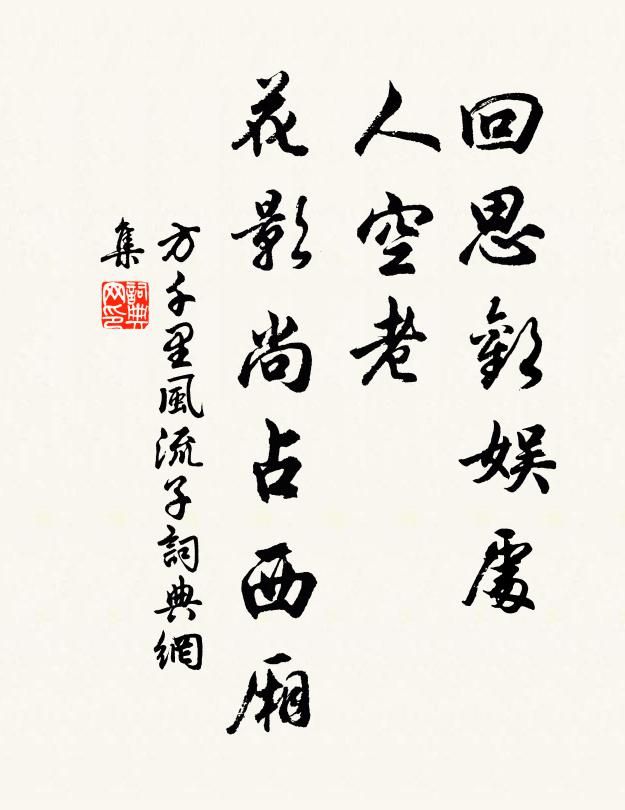 回思歡娛處
人空老
花影尚占西廂
方千里風流子詞典網
集
詞典網印